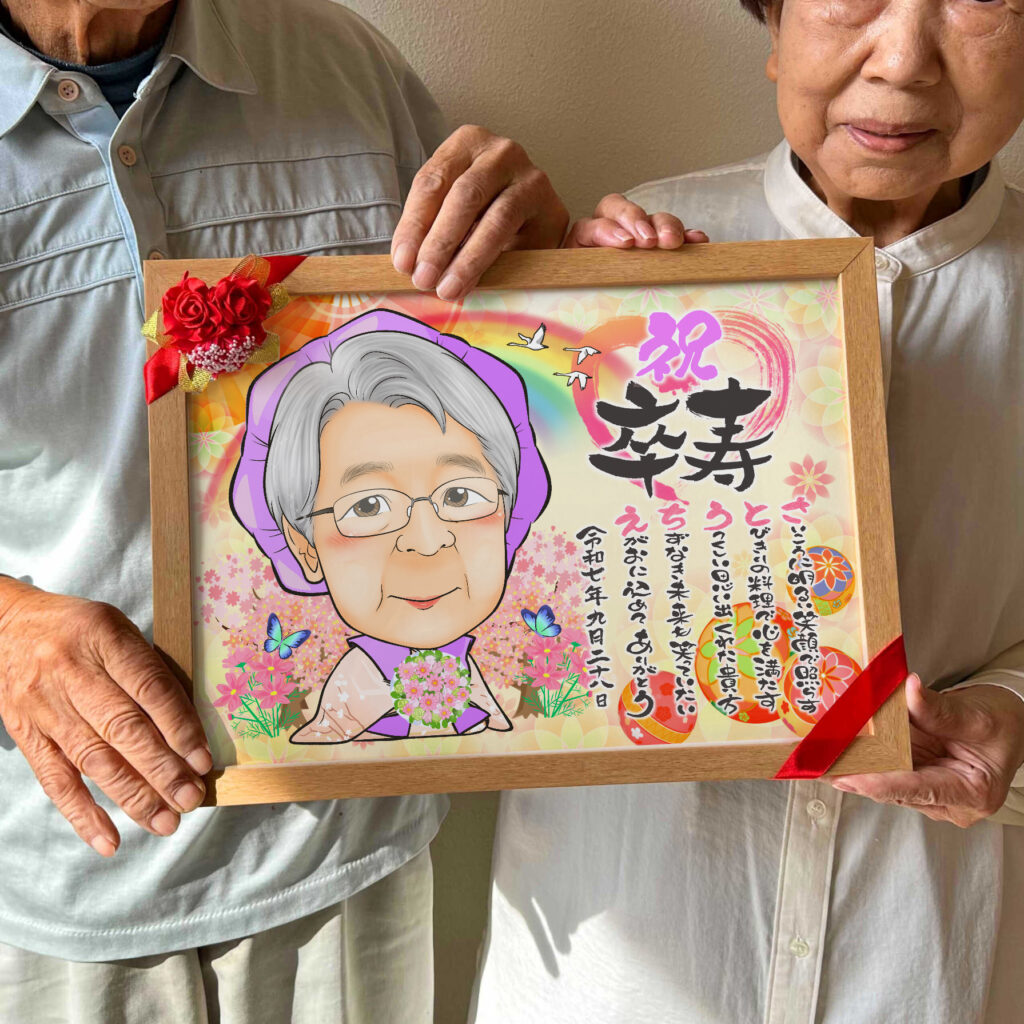 祝
卒寿
さいこうに明るい笑顔で照らす
とびきりの料理で心を満たす
うつくしい思い出くれた貴方
ちずなき未来も笑っていたい
えがおに込めて ありがとう
令和七年九月二十八日